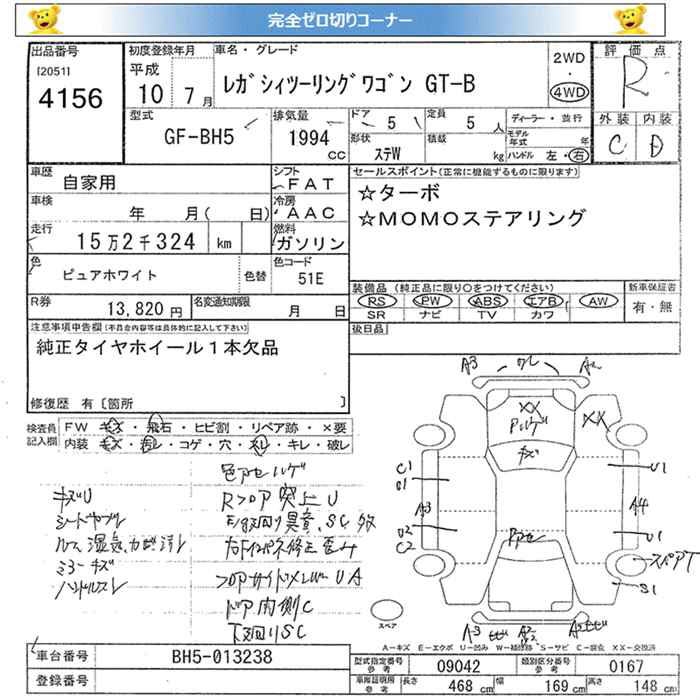 完全ゼロ切りコーナー
出品番号
[2051]
4156
初度登録年月
平成
10 7月
車名・グレード
ﾚｶﾞｼィﾂｰﾘﾝｸﾞﾜｺﾞﾝ GT-B
2WD
・
4WD
評価点
R
外装 内装
C D
型式
GF-BH5
排気量
1994
CC
ドア
5
形状
ステW
定員
5 人
積載
kg
ディーラー・並行
モデル年式 年
ハンドル 左・右
車歴
自家用
シフト
FAT
車検
年 月( 日)
冷房
AAC
走行
15万2千324 km
燃料
ガソリン
色
ピュアホワイト
色替
色コード
51E
R券
13,820 円
名変通知期限
月 日
セールスポイント(正常に機能するものに限ります)
☆ターボ
☆MOMOステアリング
装備品 (純正品に限り○をつけてください)
RS PW ABS エアB AW
SR ナビ TV カワ
新車保証書
有・無
後日品
注意事項申告欄(不具合内容等は具体的に記入して下さい)
純正タイヤホイール1本欠品
修復歴 有〔箇所 〕
検査員
記入欄
FW キズ・飛石・ヒビ割・リペア跡・×要
内装 キズ・汚レ・コゲ・穴・スレ・キレ・破レ
キズU
シートヤブレ
ミラーキズ
ハンドルスレ
色アセハゲ
Rフロア突上U
下廻りSC
ドア内側C
A3
ワレ
XX
ハゲ
XX
キズ
C1
U1
A3
U2
C2
U1
A4
U1
スペアT
S1
A3
スペア
A-キズ E-エクボ U-凹み W-補修跡 S-サビ C-腐食 XX-交換済
車台番号
BH5-013238
登録番号
型式指定番号
参考
09042
類別区分番号
参考
0167
車庫証明用
参考
長さ
468 cm
幅
169 cm
高さ
148 cm